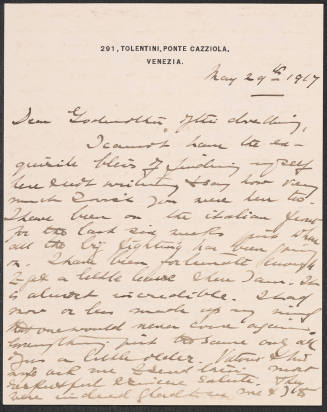 291, TOLENTINI, PONTE CAZZIOLA,
VENEZIA.
May 29th 1917
Dear Godmother of the dwelling,
I cannot have the ex-
quisite bliss of finding myself
here & not writing & say how very
much I wish you were here too.
I have been on the italian front
for the last six weeks just where
all the big fighting has been going
on. I have been fortunate enough
to get a little leave & here I am. It
is almost incredible. I had
now or less made up my mind
that one would never come again.
Everything just the same only all
of us a little older.
ask me to send their most
respectful & sincere salute. They
were indeed glad to see me &